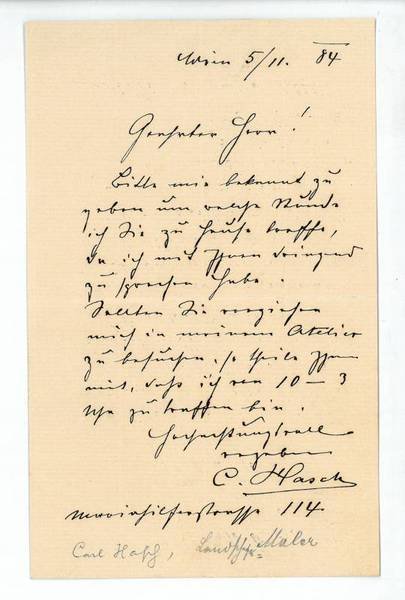 Wien 5/11. 84
Geehrter Herr!
Bitte mir bekannt zu
geben um welche Stunde
ich Sie zu Hause treffe,
da ich mit Ihnen dringend
zu sprechen habe.
Sollten Sie vorziehen
mich in meinem Atelier
zu besuchen, so theile Ihnen
mit, daß ich von 10 – 3
Uhr zu treffen bin.
Hochachtungsvoll
ergeben
C. Hasch
Mariahilferstrasse 114
Carl Hasch, Landschfts= Maler